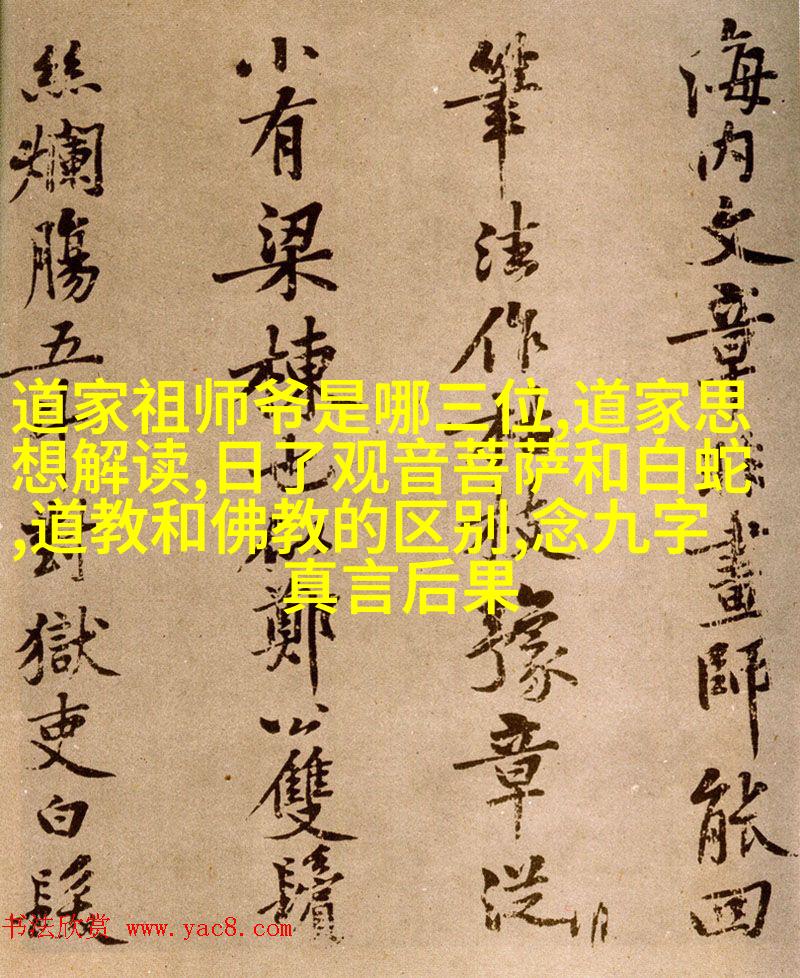 海内文章畫師能回
筆法作枝豫章從
小有梁棟也鄭公雙鬢
絲爛腸五對獄吏白髮
道家祖师爷是哪三位,道家思
想解读,日了观音菩萨和白蛇
,道教和佛教的区别,念九字
真言后果
书法欣赏 www.yac8.com